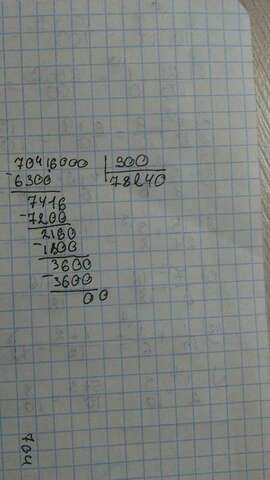 70416000 | 900
-6300 | 78240
7416
-7200
2160
-1800
3600
-3600
00
704